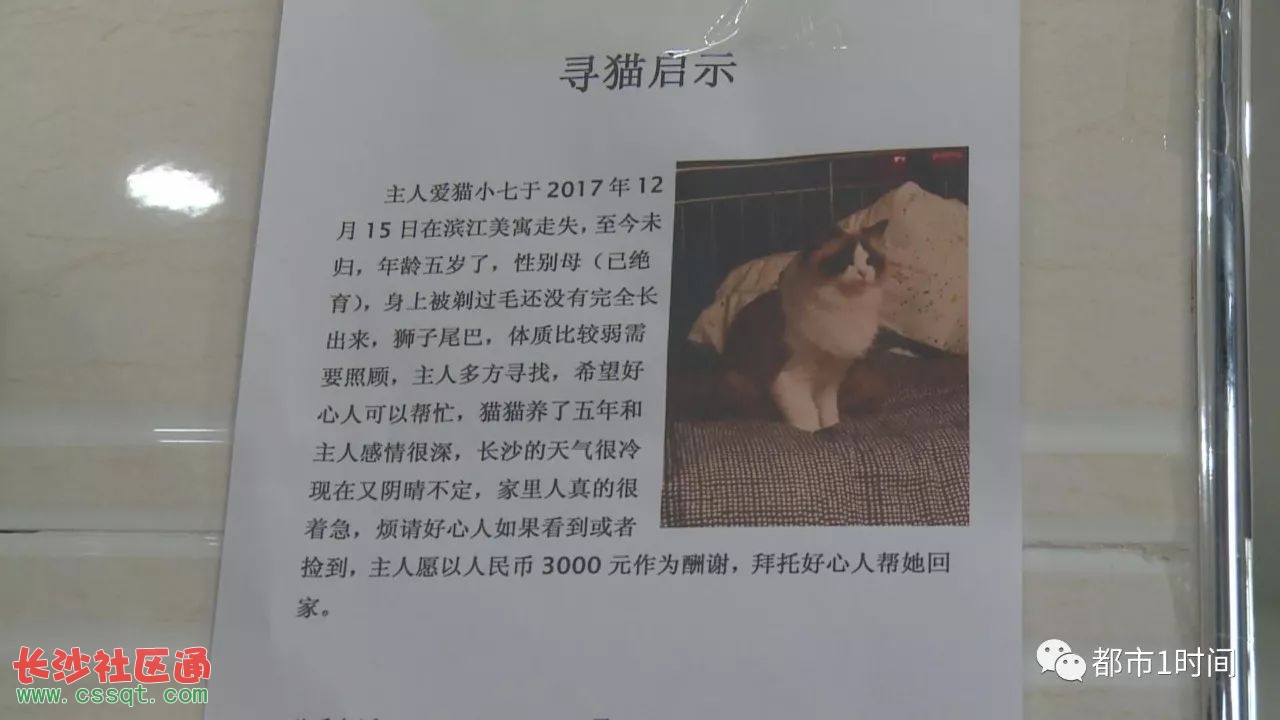 寻猫启示
主人爱猫小七于 2017 年 12
月 15 日在滨江美寓走失，至今未
归，年龄五岁了，性别母（已绝
育），身上被剃过毛还没有完全长
出来，狮子尾巴，体质比较弱需
要照顾，主人多方寻找，希望好
心人可以帮忙，猫猫养了五年和
主人感情很深，长沙的天气很冷
现在又阴晴不定，家里人真的很
着急，烦请好心人如果看到或者
捡到，主人愿以人民币 3000 元作为酬谢，拜托好心人帮她回
家。
长沙社区通
www.cssqt.com
都市1时间